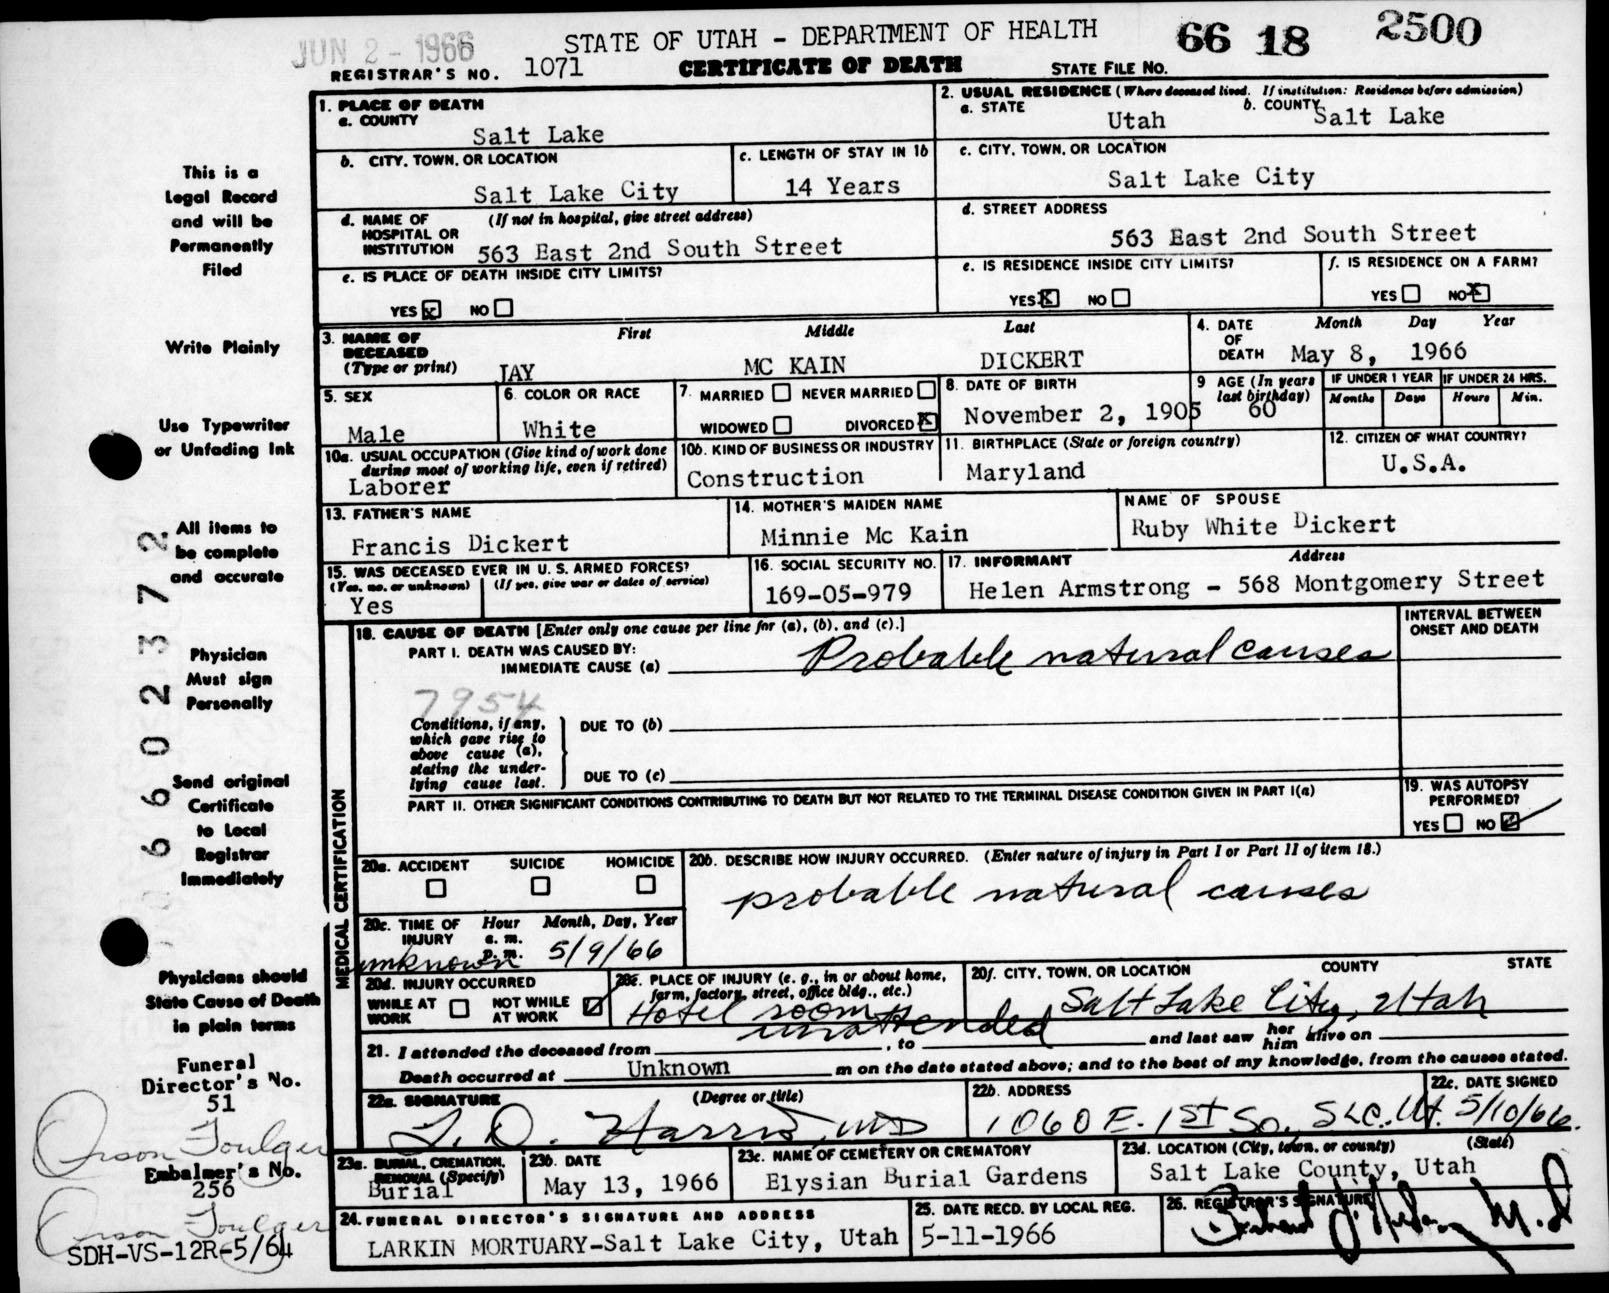 JUN 2 - 1966
STATE OF UTAH - DEPARTMENT OF HEALTH
66 18 2500
REGISTRAR'S NO. 1071
CERTIFICATE OF DEATH
STATE FILE NO.
This is a
Legal Record
and will be
Permanently
Filed
Write Plainly
Use Typewriter
or Unfading Ink
All items to
be complete
and accurate
Physician
Must sign
Personally
Send original
Certificate
to Local
Registrar
Immediately
Physicians should
State Cause of Death
in plain terms
Funeral
Director's No.
51
Orson Foulger
Embalmer's No.
256
Orson Foulger
SDH-VS-12R-5/64
066 02372
1. PLACE OF DEATH
a. COUNTY
Salt Lake
2. USUAL RESIDENCE (Where deceased lived. If institution: Residence before admission)
a. STATE
Utah
b. COUNTY
Salt Lake
b. CITY, TOWN, OR LOCATION
Salt Lake City
c. LENGTH OF STAY IN 1b
14 Years
c. CITY, TOWN, OR LOCATION
Salt Lake City
d. NAME OF HOSPITAL OR INSTITUTION
(If not in hospital, give street address)
563 East 2nd South Street
d. STREET ADDRESS
563 East 2nd South Street
e. IS PLACE OF DEATH INSIDE CITY LIMITS?
YES x NO
e. IS RESIDENCE INSIDE CITY LIMITS?
YES X NO
f. IS RESIDENCE ON A FARM?
YES NO X
3. NAME OF DECEASED
(Type or print)
First Middle Last
JAY MC KAIN DICKERT
4. DATE OF DEATH
Month Day Year
May 8, 1966
5. SEX
Male
6. COLOR OR RACE
White
7. MARRIED NEVER MARRIED
WIDOWED DIVORCED X
8. DATE OF BIRTH
November 2, 1905
9 AGE (In years last birthday)
60
IF UNDER 1 YEAR
Months Days
IF UNDER 24 HRS.
Hours Min.
10a. USUAL OCCUPATION (Give kind of work done
during most of working life, even if retired)
Laborer
10b. KIND OF BUSINESS OR INDUSTRY
Construction
11. BIRTHPLACE (State or foreign country)
Maryland
12. CITIZEN OF WHAT COUNTRY?
U.S.A.
13. FATHER'S NAME
Francis Dickert
14. MOTHER'S MAIDEN NAME
Minnie Mc Kain
NAME OF SPOUSE
Ruby White Dickert
15. WAS DECEASED EVER IN U. S. ARMED FORCES?
(Yes, no, or unknown) (If yes, give war or dates of service)
Yes
16. SOCIAL SECURITY NO.
169-05-979
17. INFORMANT Address
Helen Armstrong - 568 Montgomery Street
MEDICAL CERTIFICATION
18. CAUSE OF DEATH [Enter only one cause per line for (a), (b), and (c).]
PART I. DEATH WAS CAUSED BY:
IMMEDIATE CAUSE (a) Probable natural causes
INTERVAL BETWEEN
ONSET AND DEATH
7954
Conditions, if any,
which gave rise to
above cause (a),
stating the under-
lying cause last.
DUE TO (b)
DUE TO (c)
PART II. OTHER SIGNIFICANT CONDITIONS CONTRIBUTING TO DEATH BUT NOT RELATED TO THE TERMINAL DISEASE CONDITION GIVEN IN PART I(a)
19. WAS AUTOPSY
PERFORMED?
YES NO ✓
20a. ACCIDENT SUICIDE HOMICIDE
20b. DESCRIBE HOW INJURY OCCURRED. (Enter nature of injury in Part I or Part II of item 18.)
probable natural causes
20c. TIME OF INJURY
Hour Month, Day, Year
a. m.
p. m.
unknown 5/9/66
20d. INJURY OCCURRED
WHILE AT WORK NOT WHILE AT WORK ✓
20e. PLACE OF INJURY (e. g., in or about home,
farm, factory, street, office bldg., etc.)
Hotel room
20f. CITY, TOWN, OR LOCATION COUNTY STATE
Salt Lake City, Utah
unattended
21. I attended the deceased from , to and last saw her him alive on
Death occurred at Unknown m on the date stated above; and to the best of my knowledge, from the causes stated.
22a. SIGNATURE (Degree or title)
22b. ADDRESS
1060 E. 1st So, SLC. Ut.
22c. DATE SIGNED
5/10/66.
23a. BURIAL, CREMATION,
REMOVAL (Specify)
Burial
23b. DATE
May 13, 1966
23c. NAME OF CEMETERY OR CREMATORY
Elysian Burial Gardens
23d. LOCATION (City, town, or county) (State)
Salt Lake County, Utah
24. FUNERAL DIRECTOR'S SIGNATURE AND ADDRESS
LARKIN MORTUARY-Salt Lake City, Utah
25. DATE RECD. BY LOCAL REG.
5-11-1966
26. REGISTRAR'S SIGNATURE